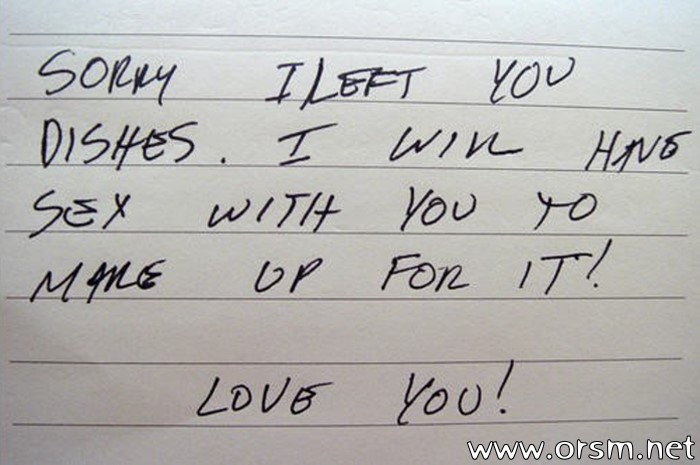 SORRY I LEFT YOU
DISHES. I WILL HAVE
SEX WITH YOU TO
MAKE UP FOR IT!
LOVE YOU!
www.orsm.net